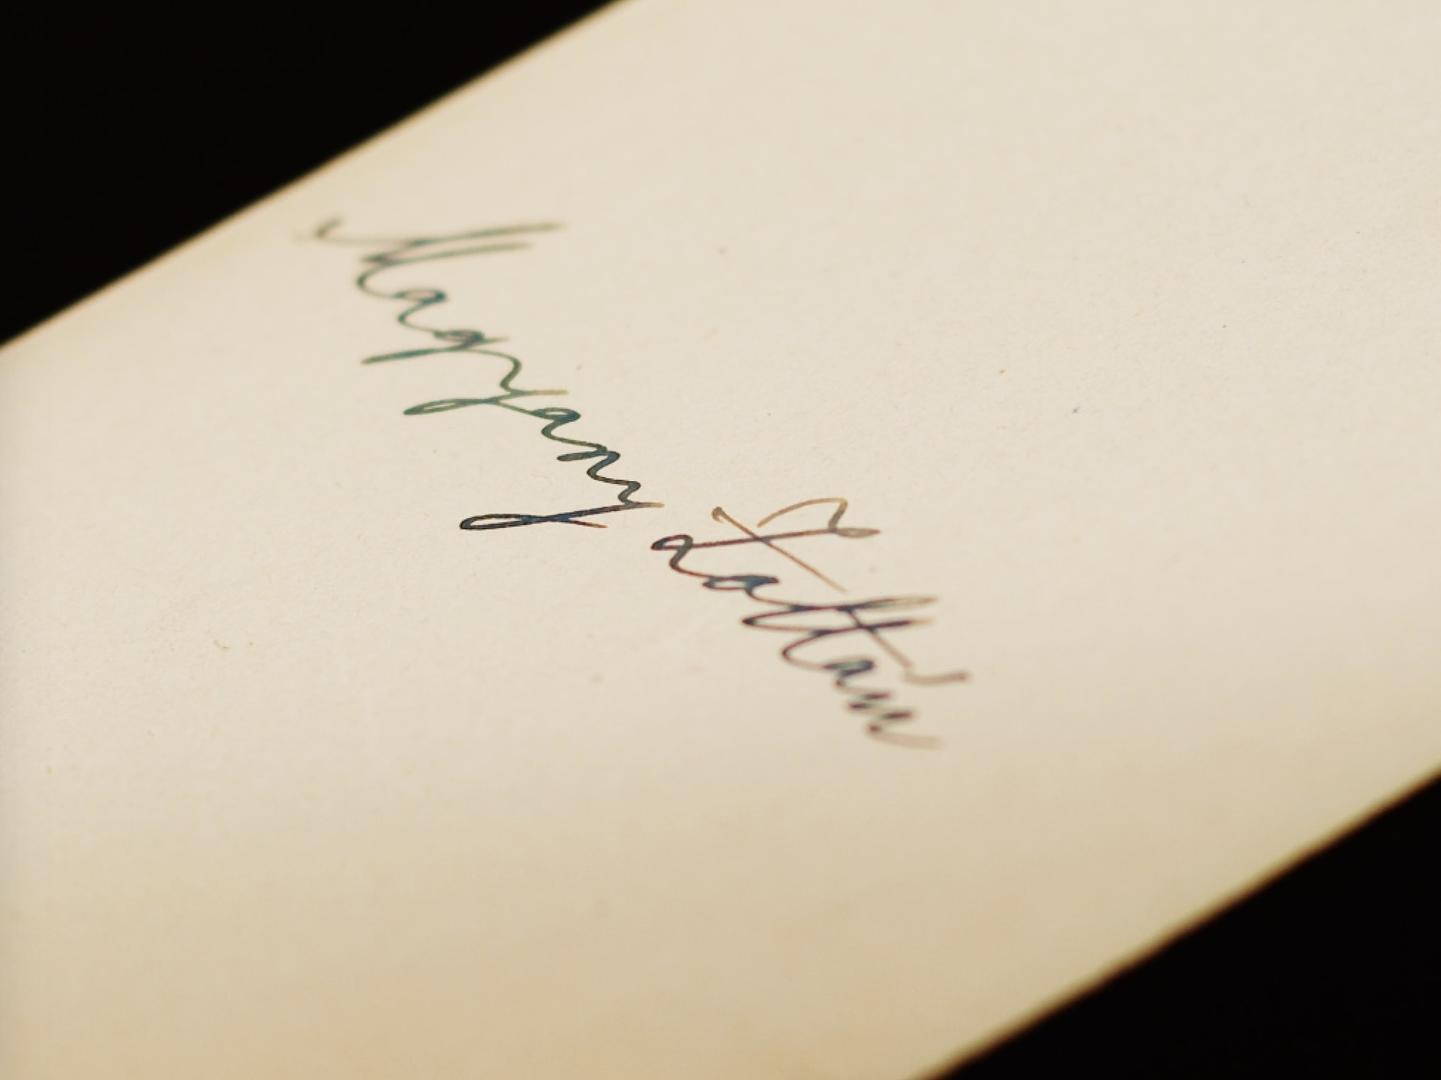 Magyary Zoltán